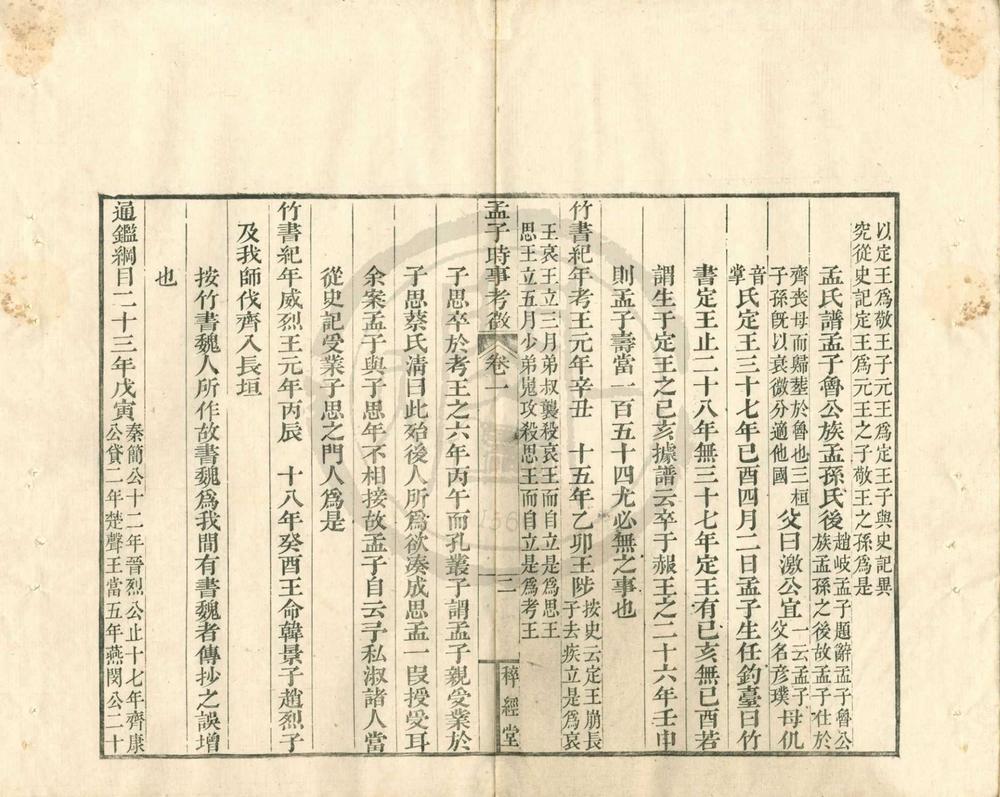 以定王為敬王子元王為定王子與史記異
究從史記定王為元王之子敬王之孫為是
孟氏譜孟子魯公族孟孫氏後
趙岐孟子題辭孟子魯公
族孟孫之後故孟子仕於
齊喪母而歸塟於魯也三桓
子孫旣以衰微分適他國
父曰激公宜
一云孟子
父名彥璞
母仉
音
掌
氏定王三十七年己酉四月二日孟子生任釣臺曰竹
書定王止二十八年無三十七年定王有己亥無己酉若
謂生于定王之己亥據譜云卒于赧王之二十六年壬申
則孟子壽當一百五十四尤必無之事也
竹書紀年考王元年辛丑　十五年乙卯王陟
按史云定王崩長
子去疾立是為哀
王哀王立三月弟叔襲殺哀王而自立是爲思王
思王立五月少弟嵬攻殺思王而自立是爲考王
孟子時事考徵　卷一　二　稡經堂
子思卒於考王之六年丙午而孔叢子謂孟子親受業於
子思蔡氏淸曰此殆後人所爲欲湊成思孟一叚授受耳
余案孟子與子思年不相接故孟子自云予私淑諸人當
從史記受業子思之門人爲是
竹書紀年威烈王元年丙辰　十八年癸酉王命韓景子趙烈子
及我師伐齊入長垣
按竹書魏人所作故書魏爲我間有書魏者傳抄之誤增
也
通鑑綱目二十三年戊寅
秦簡公十二年晉烈公止十七年齊康
公貸二年楚聲王當五年燕閔公二十